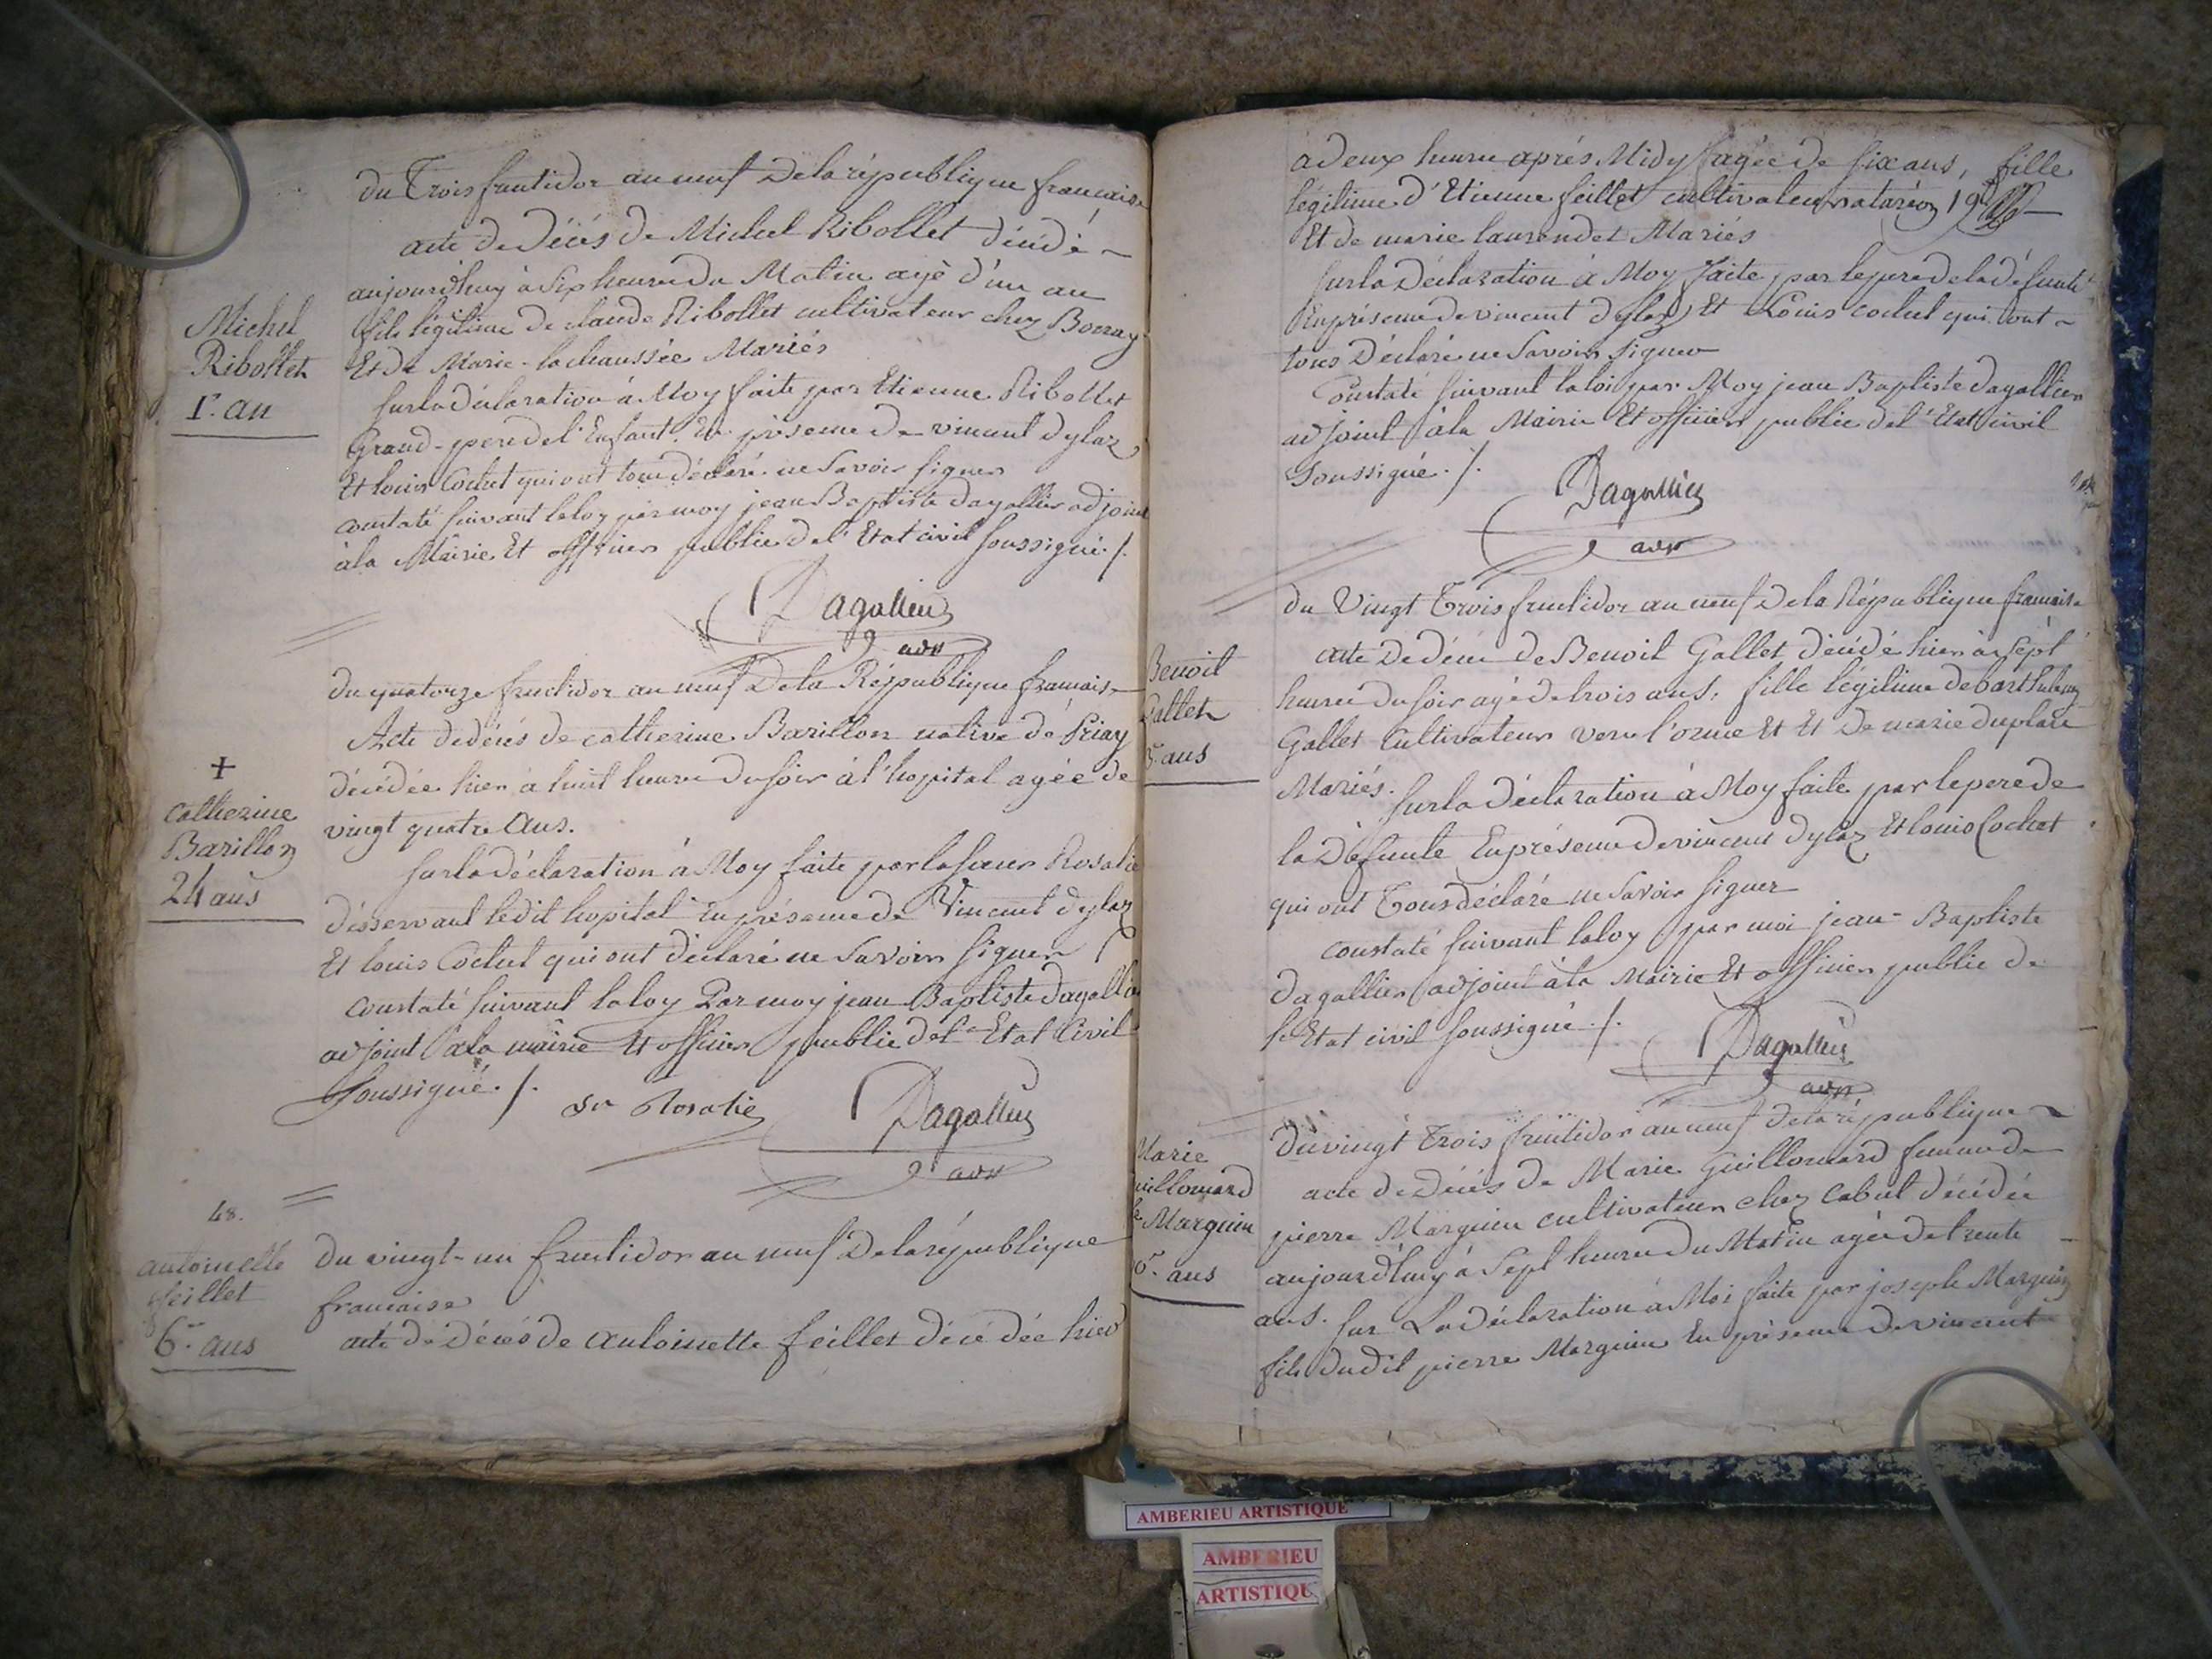 du Trois fructidor an neuf De la république francaise
acte de Décés de Michel Ribollet décédé
aujourd'huy à Six heure du Matin agé d'un an
fils légitime de claude Ribollet cultivateur chez Bonnay
Et de Marie-lachaussée Mariés
Michel
Ribollet
1r. an
sur la déclaration à Moy faite par Etienne Ribollet
Grand-pere de l'Enfant. En présence de vincent dylaz
Et louis Cochet qui ont tous déclaré ne Savoir signer
constaté suivant la loy par moy jean Baptiste dagallier adjoint
à la Mairie Et officier public de l'Etat civil soussigné ./.
Dagallier
adjt
du quatorze fructidor an neuf De la République francaise
Acte de décés de catherine Barillon native de Priay
décédée hier à huit heure du soir à l'hopital agée de
vingt quatre ans.
+
catherine
Barillon
24 ans
sur la déclaration à Moy faite par la sœur Rosalie
desservant ledit hopital En présence de Vincent dylaz
Et louis Cochet qui ont déclaré ne Savoir signer
constaté suivant la loy Par moy jean Baptiste dagallier
adjoint à la mairie Et officier public de l'Etat Civil
Soussigné ./.
Sr Rosalie
Dagallier
adjt
48.
antoinette
feillet
6r. ans
du vingt-un fructidor an neuf De la république
francaise
acte de décés de antoinette feillet décédée hier
à deux heure aprés Midy agée de six ans, fille
légitime d'Etienne feillet cultivateur
Et de marie laurendet Mariés
sur la Déclaration à Moy faite par le pere de la défunte
En présence de vincent dylaz Et Louis cochet qui ont
tous Déclaré ne Savoir signer
Constaté suivant la loi par Moy jean Baptiste dagallier
adjoint à la Mairie Et officier public de l'Etat civil
Soussigné ./.
Dagallier
adjt
du Vingt Trois fructidor an neuf De la République francaise
Benoit
Gallet
3r. ans
acte De décé de Benoit Gallet décédé hier à sept
heure du soir agé de trois ans, fille légitime de barthelemy
Gallet Cultivateur vers l'orme Et Et De marie duplatre
Mariés.
sur la déclaration à Moy faite par le pere de
la Défunte En présence de vincent dylaz Et louis Cochet
qui ont Tous déclaré ne Savoir signer
constaté suivant la loy par moi jean-Baptiste
dagallier adjoint à la Mairie Et officier public de
l'Etat civil soussigné ./.
Dagallier
adjt
Marie
guillomard
fe Marguin
ans
du vingt Trois fructidor an neuf de la république
acte de Décés de Marie Guillomard femme de
pierre Marguin cultivateur chez Cabut décédée
aujourd'huy à Sept heure du Matin agée de trente
ans. sur La déclaration à Moi faite par joseph Marguin
fils dudit pierre Marguin En présence de vincent
AMBERIEU ARTISTIQUE
AMBERIEU
ARTISTIQU